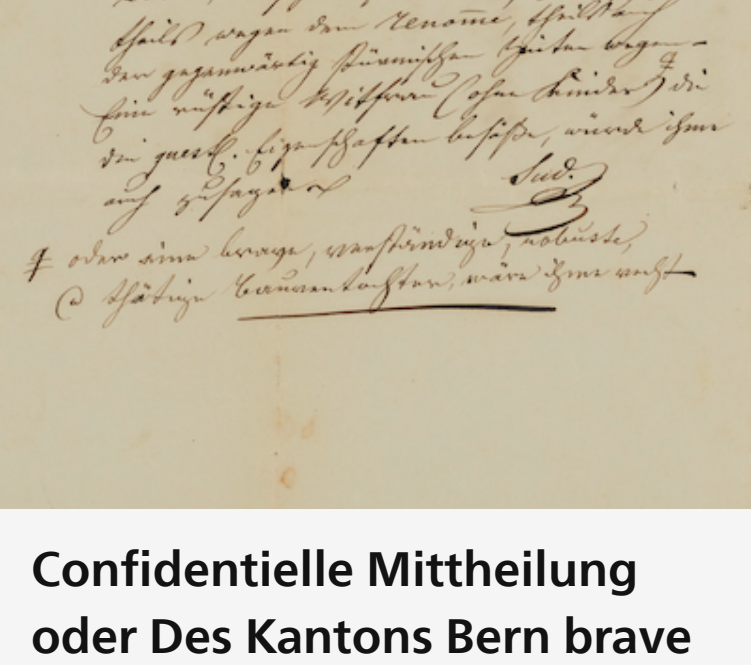 theils wegen dem renomē, theils auch
der gegenwärtig stürmischen Zeiten wegen –
Eine rüstige Witfrau (ohne Kinder) ⚥ die
die quest. Eigenschaften besäße, würde ihme
auch zusagen
oder eine brave, verständige, robuste,
thätige Bauerntochter, wäre ihme recht
Confidentielle Mittheilung
oder Des Kantons Bern brave